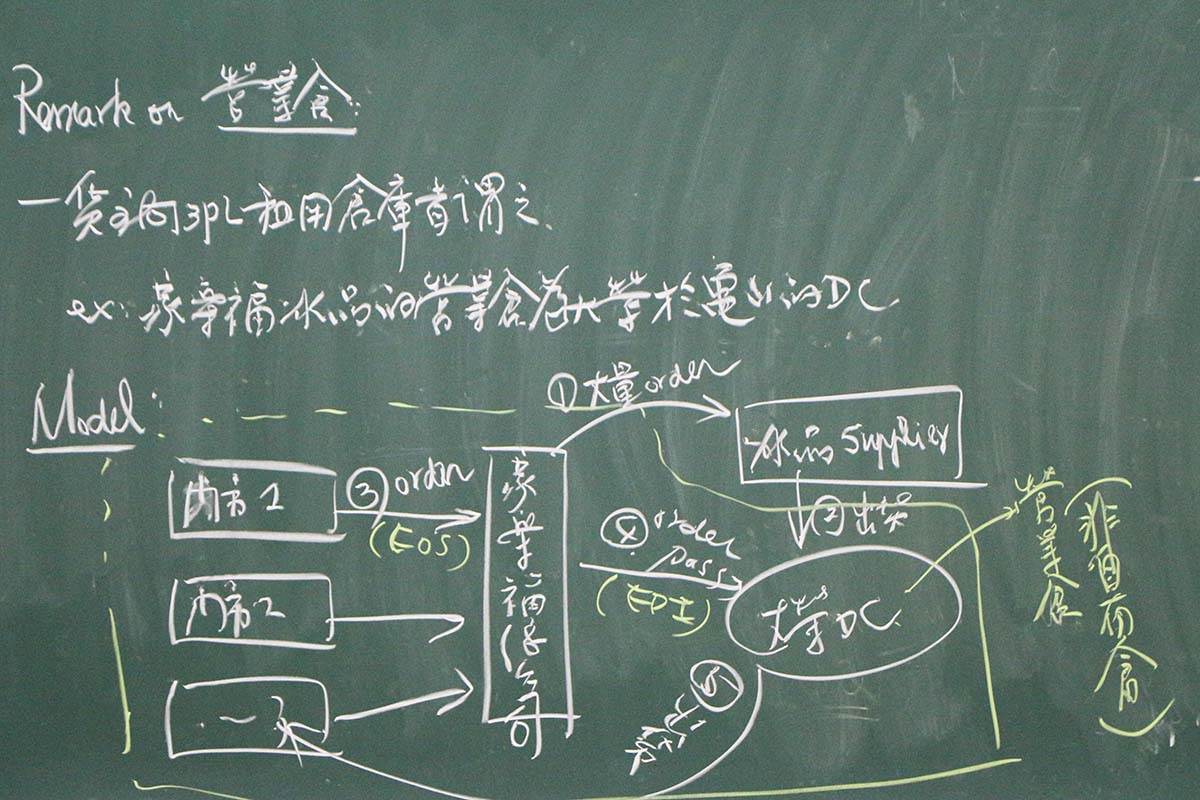 Remark on 營業倉:
一貨主向3PL租用倉庫者謂之.
ex: 家樂福冰品的營業倉為大榮於龜山的DC
Model:
①大量order
冰品 Supplier
②出貨
門市1
③order
(EOS)
家樂福總公司
④order pass
(EDI)
大榮DC
營業倉
(非自有倉)
門市2
⑤